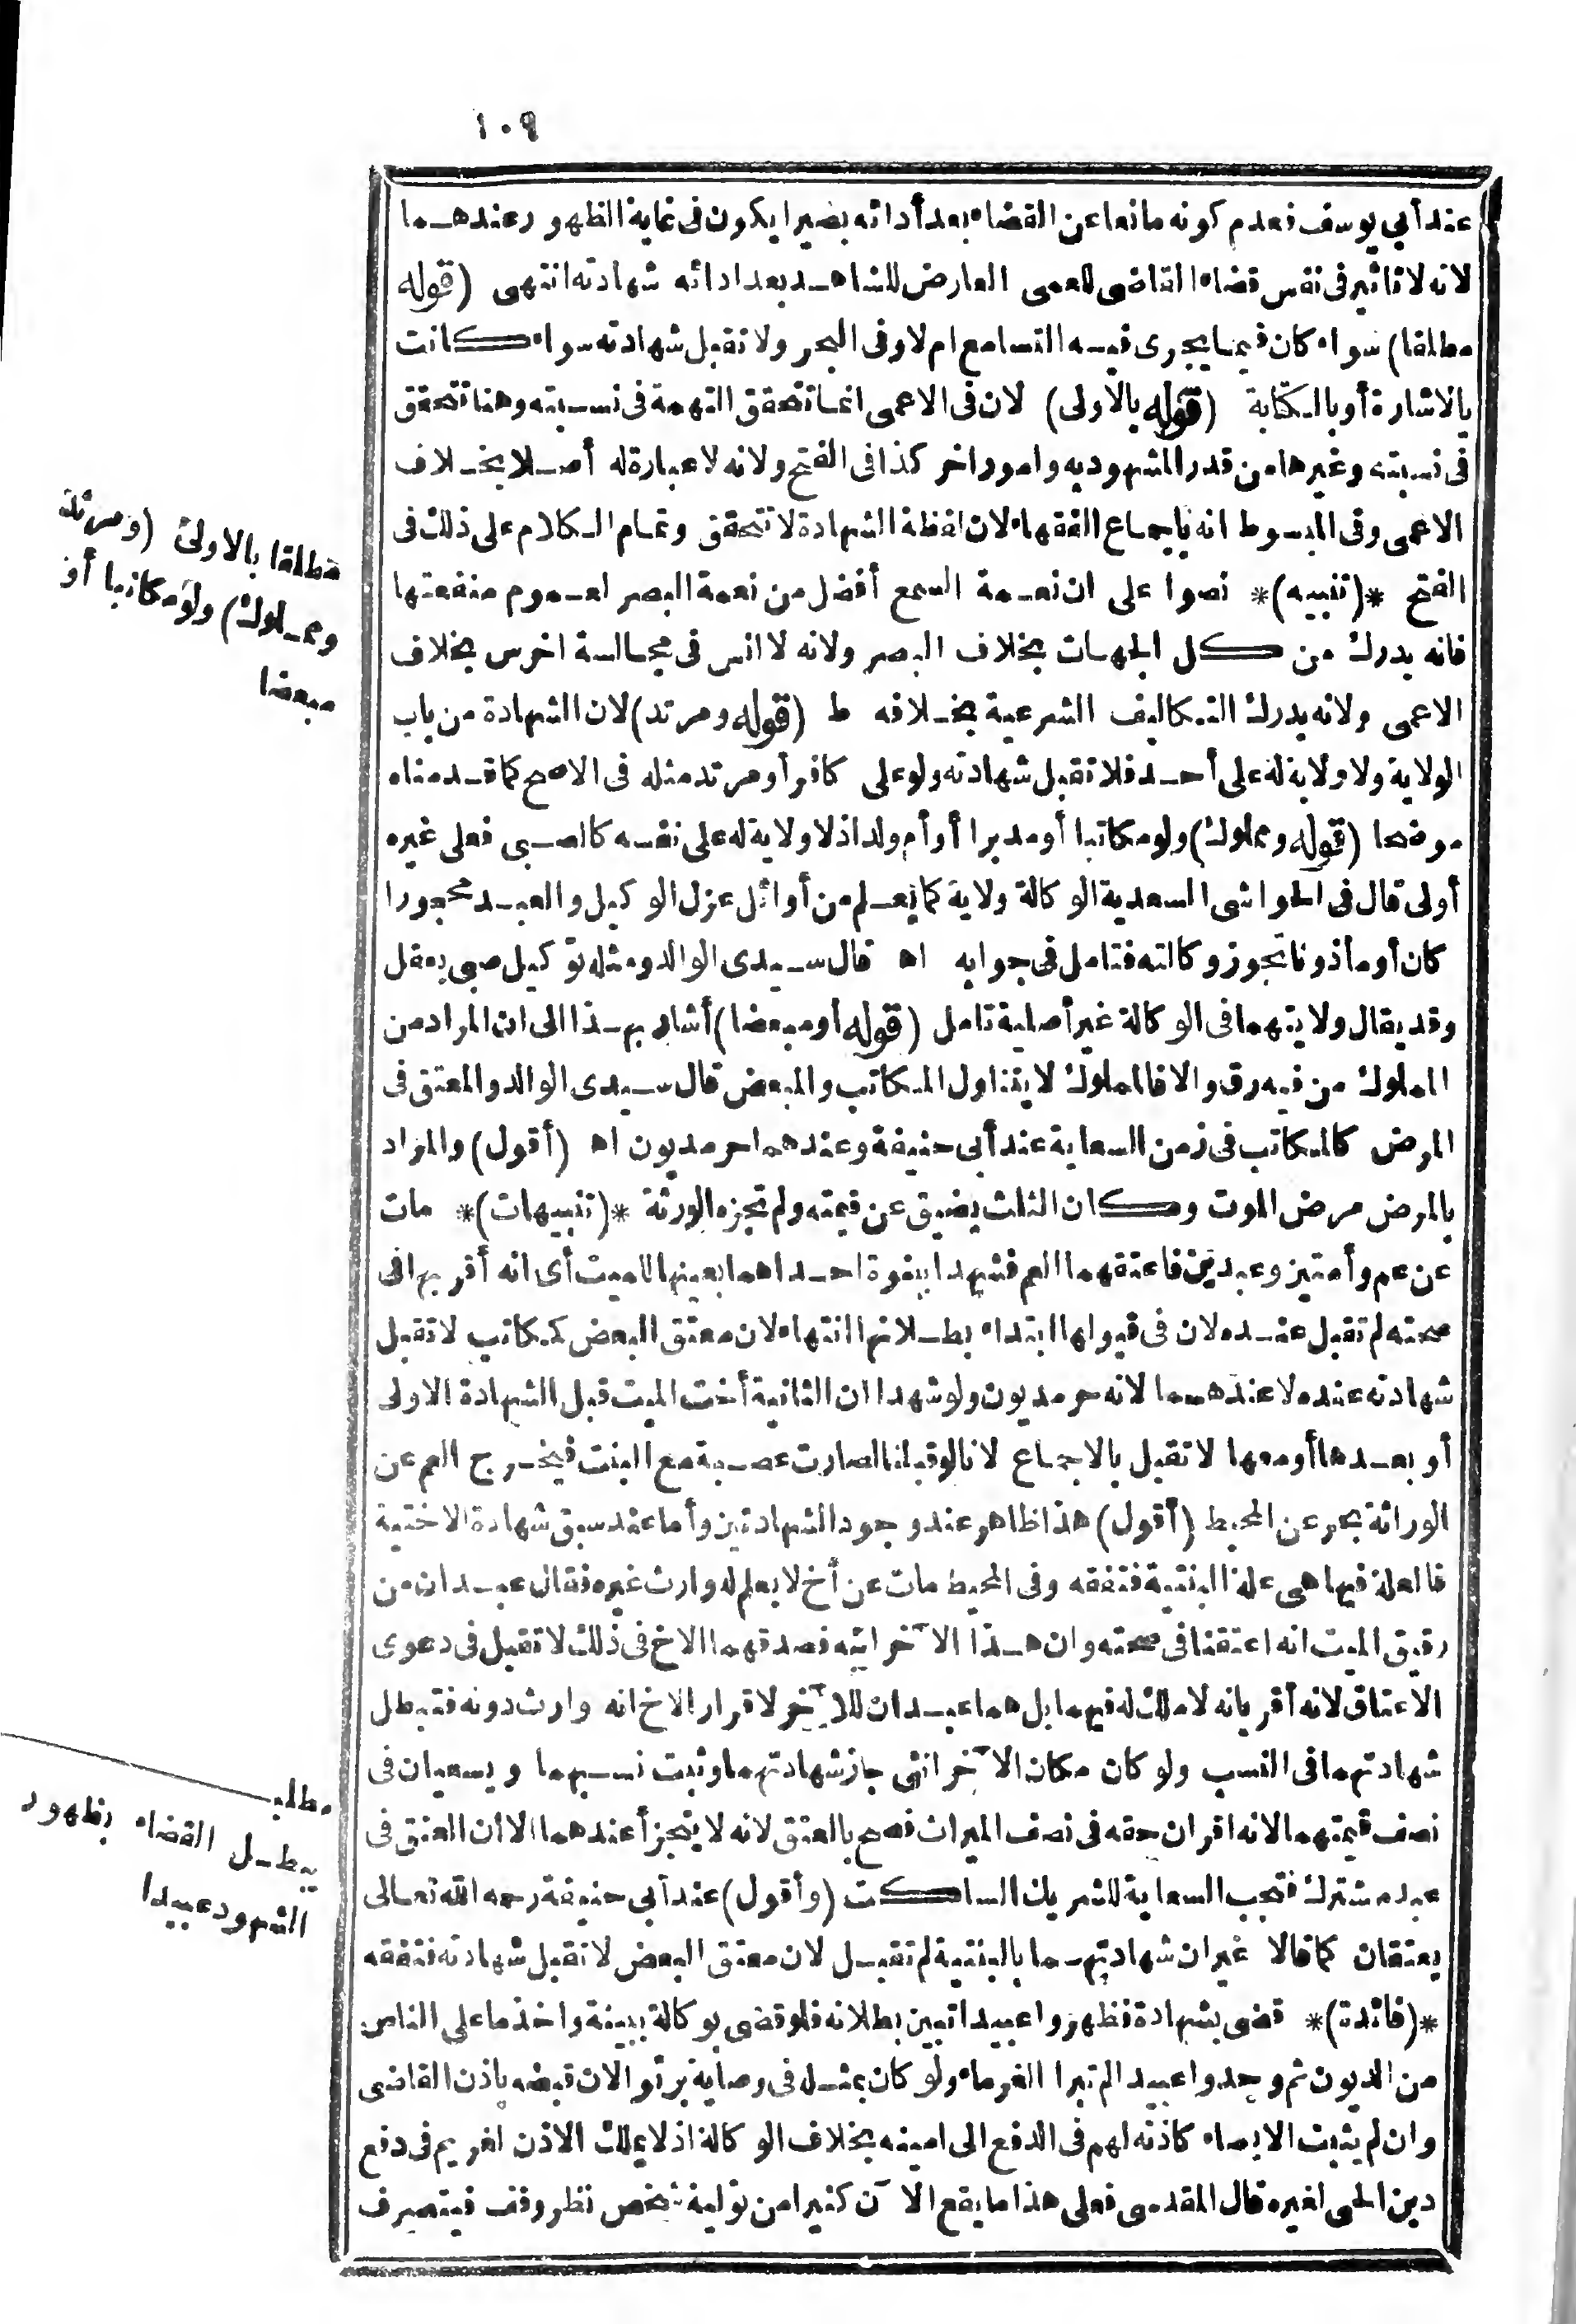 ١٠٩
عند أبي يوسف فعدم كونه مانعا عن القضاء بعد أدائه بصيرا يكون في غاية الظهور وعندهما
لانه لا تاثير في نفس قضاء القاضي للعمى العارض للشاهد بعد ادائه شهادته انتهى (قوله
مطلقا) سواء كان فيما يجرى فيه التسامع ام لا وفى البحر ولا تقبل شهادته سواء كانت
بالاشارة أو بالكتابة (قوله بالاولى) لان في الاعمى انما تتحقق التهمة في نسبته وهنا تتحقق
في نسبته وغيرها من قدر المشهود به وامور اخر كذا في الفتح ولانه لا عبارة له أصلا بخلاف
الاعمى وفى المبسوط انه باجماع الفقهاء لان لفظة الشهادة لا تتحقق وتمام الكلام على ذلك في
الفتح *(تنبيه)* نصوا على ان نعمة السمع أفضل من نعمة البصر لعموم منفعتها
فانه يدرك من كل الجهات بخلاف البصر ولانه لا انس في مجالسة اخرس بخلاف
الاعمى ولانه يدرك التكاليف الشرعية بخلافه ط (قوله ومرتد) لان الشهادة من باب
الولاية ولا ولاية له على أحد فلا تقبل شهادته ولو على كافر أو مرتد مثله في الاصح كما قدمناه
موضحا (قوله ومملوك) ولو مكاتبا أو مدبرا أو أم ولد اذ لا ولاية له على نفسه كالصبى فعلى غيره
أولى قال في الحواشى السعدية الوكالة ولاية كما يعلم من أوائل عزل الوكيل والعبد محجورا
كان أو مأذونا تجوز وكالته فتامل في جوابه اه قال سيدى الوالد ومثله توكيل صبى يعقل
وقد يقال ولايتهما في الوكالة غير أصلية تامل (قوله أو مبعضا) أشار بهذا الى ان المراد من
المملوك من فيه رق والا فالمملوك لا يتناول المكاتب والمبعض قال سيدى الوالد والمعتق في
المرض كالمكاتب في زمن السعاية عند أبى حنيفة وعندهما حر مديون اه (أقول) والمراد
بالمرض مرض الموت وكان الثلث يضيق عن قيمته ولم تجزه الورثة *(تنبيهات)* مات
عن عم وأمتين وعبدين فاعتقهما العم فشهدا ببنوة احداهما بعينها للميت أى انه أقر بها في
صحته لم تقبل عنده لان في قبولها ابتداء بطلانها انتهاء لان معتق البعض كمكاتب لا تقبل
شهادته عنده لا عندهما لانه حر مديون ولو شهدا ان الثانية أخت الميت قبل الشهادة الاولى
أو بعدها أو معها لا تقبل بالاجماع لانا لو قبلنا لصارت عصبة مع البنت فيخرج العم عن
الوراثة بحر عن المحيط (أقول) هذا ظاهر عند وجود الشهادتين وأما عند سبق شهادة الاختية
فالعلة فيها هى علة البنتية فتفقه وفى المحيط مات عن أخ لا يعلم له وارث غيره فقال عبدان من
رقيق الميت انه اعتقنا في صحته وان هذا الآخر ابنه فصدقهما الاخ في ذلك لا تقبل في دعوى
الاعتاق لانه أقر بانه لا ملك له فيهما بل هما عبدان للآخر لاقرار الاخ انه وارث دونه فتبطل
شهادتهما في النسب ولو كان مكان الآخر انثى جاز شهادتهما وثبت نسبهما ويسعيان في
نصف قيمتهما لانه اقر ان حقه في نصف الميراث فصح بالعتق لانه لا يتجزأ عندهما الا ان العتق في
عبد مشترك فتجب السعاية للشريك الساكت (وأقول) عند أبى حنيفة رحمه الله تعالى
يعتقان كما قالا غير ان شهادتهما بالبنتية لم تقبل لان معتق البعض لا تقبل شهادته فتفقه
*(فائدة)* قضى بشهادة فظهروا عبيدا تبين بطلانه فلو قضى بوكالة ببينة واخذ ما على الناس
من الديون ثم وجدوا عبيدا لم تبرا الغرماء ولو كان بمثله في وصاية برئوا لان قبضه باذن القاضى
وان لم يثبت الايصاء كاذنه لهم في الدفع الى امينه بخلاف الوكالة اذ لا يملك الاذن لغريم في دفع
دين الحى لغيره قال المقدسى فعلى هذا ما يقع الآن كثيرا من تولية شخص نظر وقف فيتصرف
مطلقا بالاولى (ومرتد
ومملوك) ولو مكاتبا أو
مبعضا
مطلب
يبطل القضاء بظهور
الشهود عبيدا